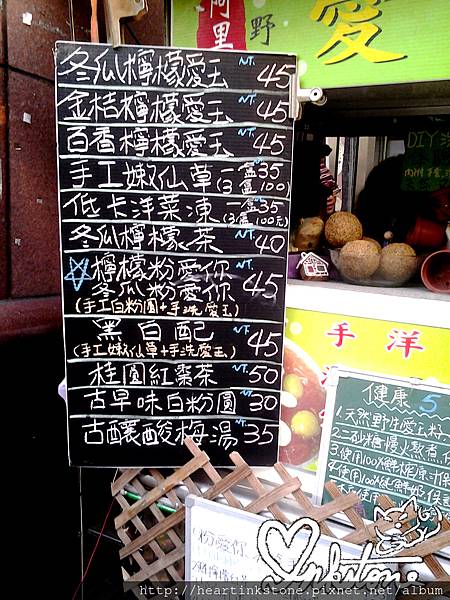 阿里
野
愛
冬瓜檸檬愛玉 NT. 45
金桔檸檬愛玉 NT. 45
百香檸檬愛玉 NT. 45
手工嫩仙草 一盒35
(3盒100)
低卡洋菜凍 一盒35
(3盒100元)
冬瓜檸檬茶 NT. 40
檸檬粉愛你
冬瓜粉愛你 NT. 45
(手工白粉圓+手洗愛玉)
黑白配 NT. 45
(手工嫩仙草+手洗愛玉)
桂圓紅棗茶 NT. 50
古早味白粉圓 NT. 30
古釀酸梅湯 NT. 35
DIY
手洋
健康5
1.天然野生愛玉籽
2.二砂糖慢火熬煮
3.使用100%鮮榨原汁
4.使用100%
粉愛你
http://heartinkstone.pixnet.net/album